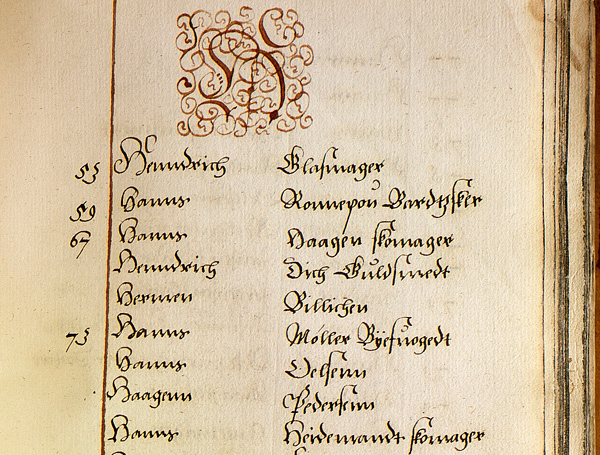 H
55 Henndrich Glasmager
59 Hanns Ronnepou Bardtsker
67 Hanns Haagen skomager
Henndrich Dich Guldsmedt
Hermen Billichen
73 Hanns Möller Byefuogedt
Hanns Oelsenn
Haagenn Pedersenn
Hanns Heidemandt skomager